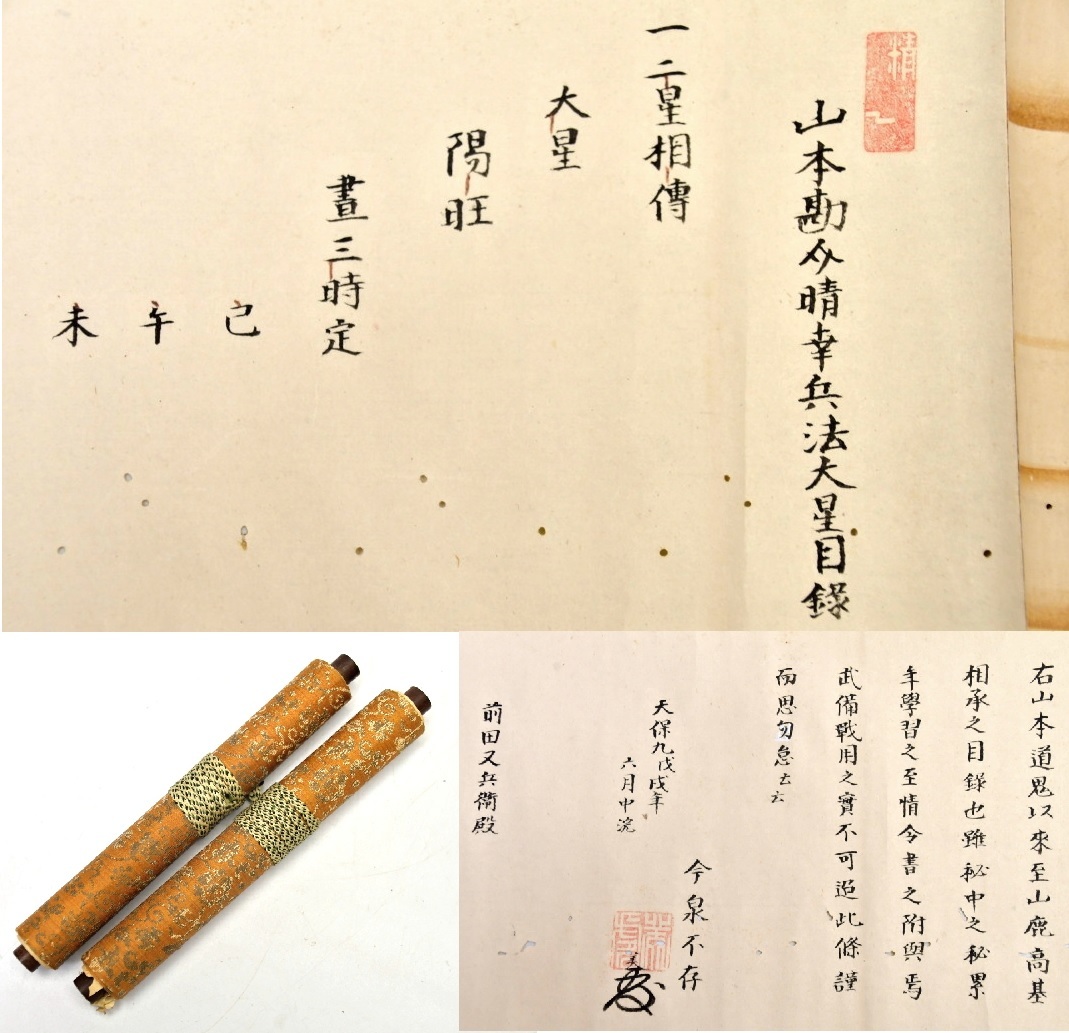 山本勘介晴幸兵法大星目録
一二星相傳
大星
陽旺
晝三時定
巳
午
未
右山本道鬼以来至山鹿高基
相承之目録也雖秘中之秘累
年學習之至情今書之附與焉
武備戰用之實不可過此條謹
而思勿怠云云
天保九戊戌年
六月中浣
今泉不存
前田又兵衛殿